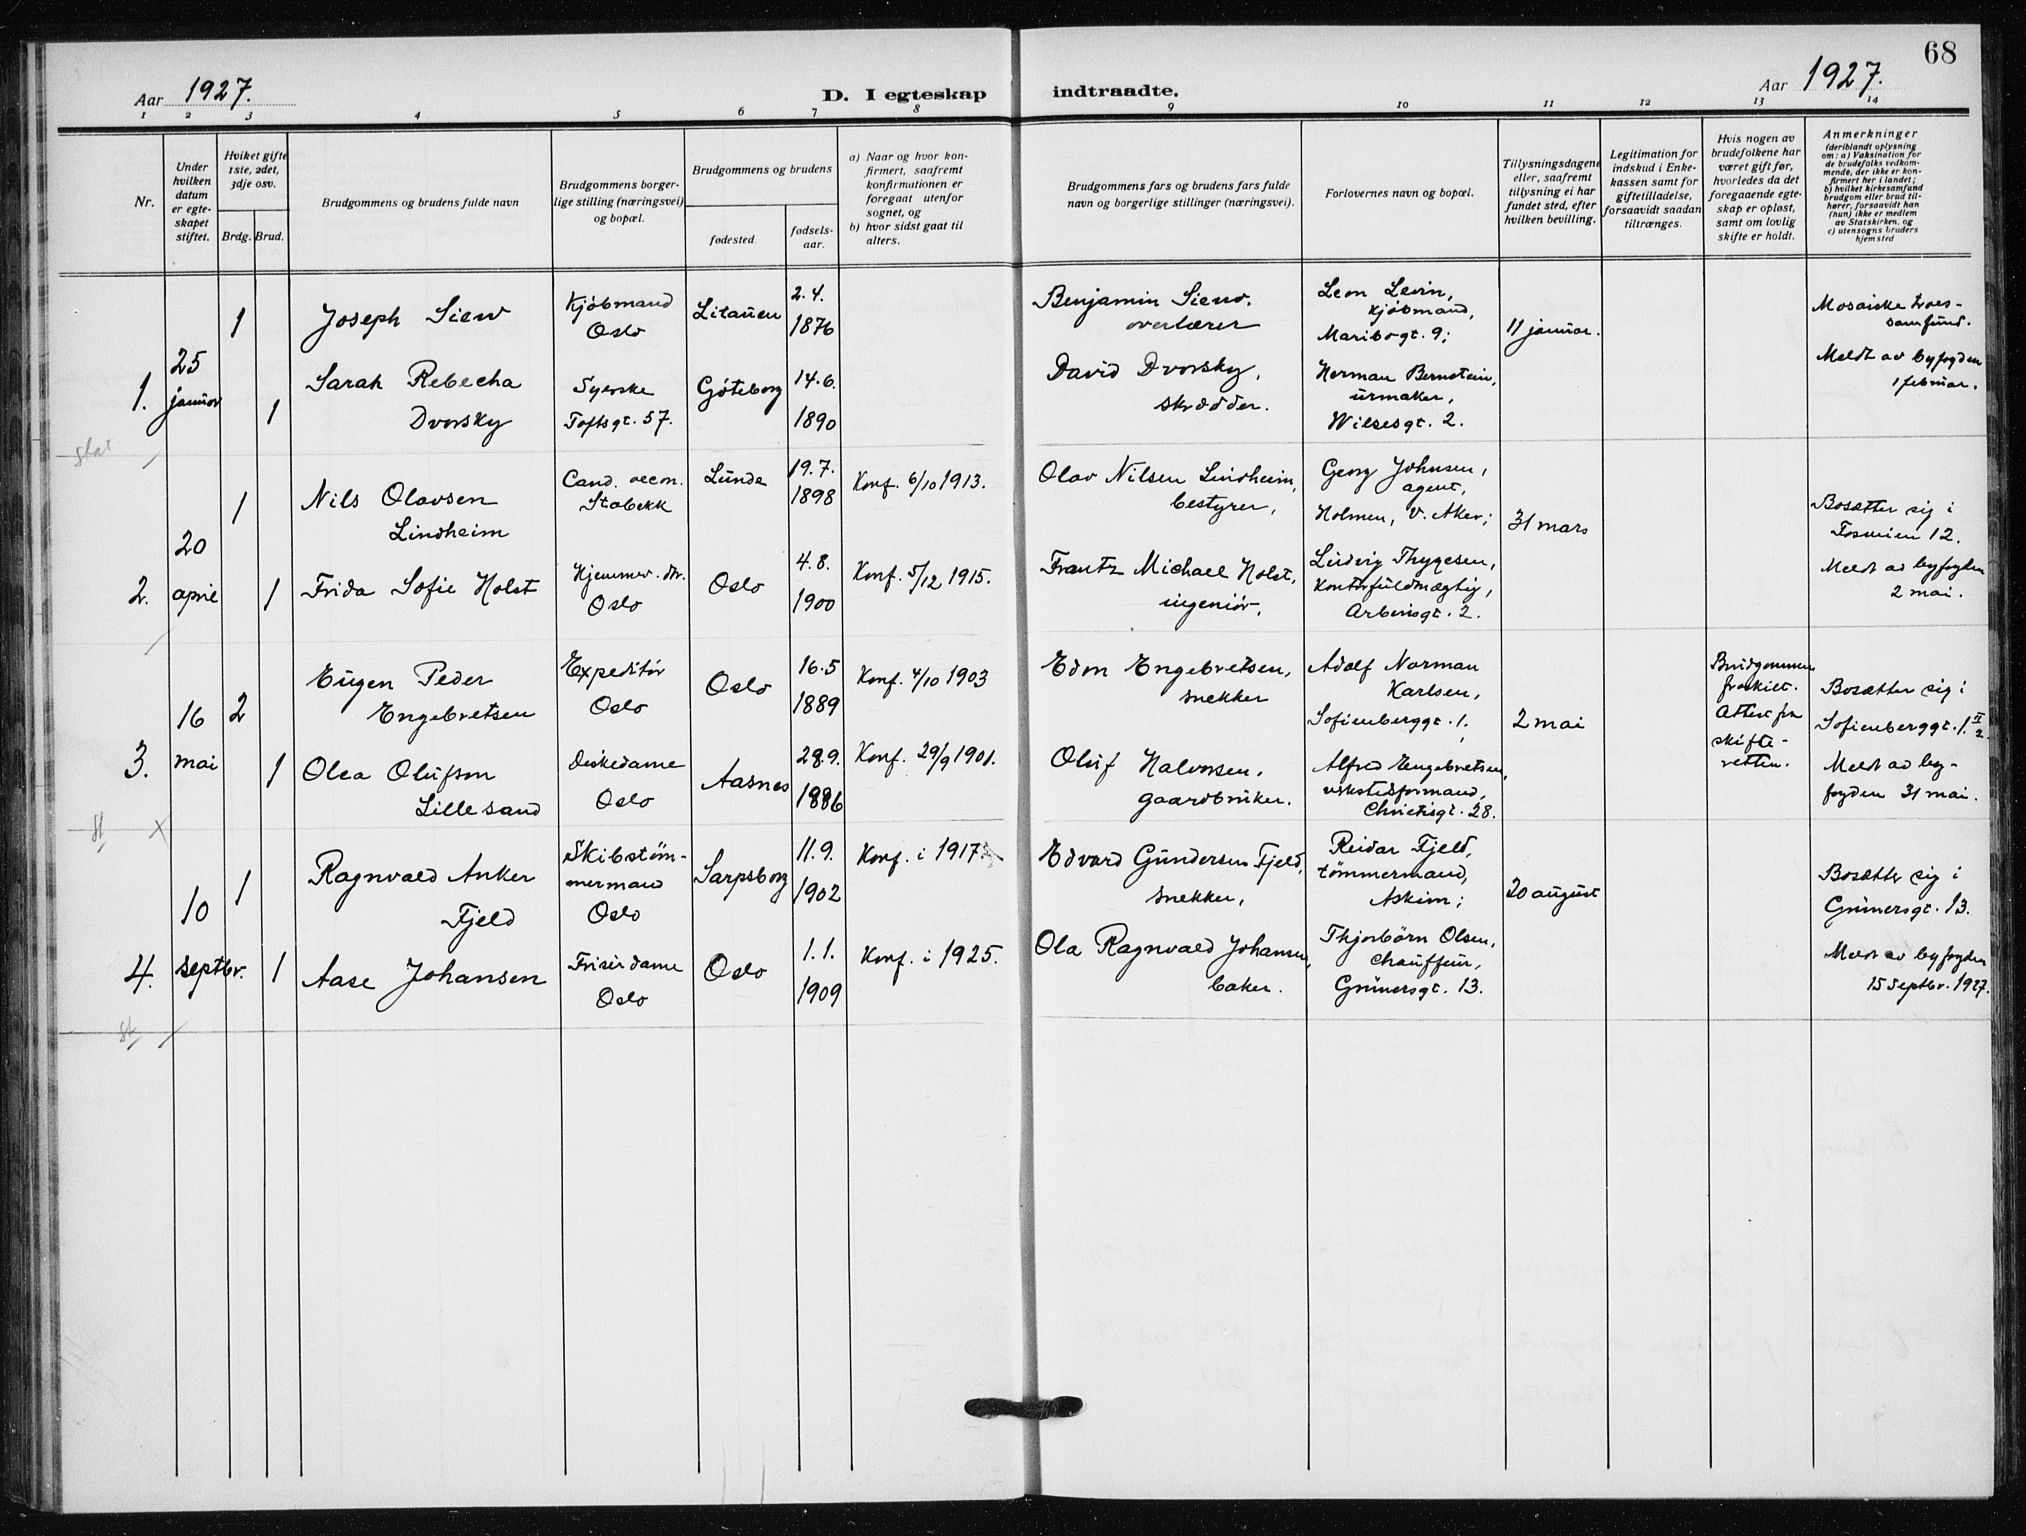 68
Aar 1927. D. I egteskap indtraadte. Aar 1927.
1 2 3 4 5 6 7 8 9 10 11 12 13 14
Nr.
Under
hvilken
datum
er egte-
skapet
stiftet.
Hviket gifte
1ste, 2det,
3dje osv.
Brdg. Brud.
Brudgommens og brudens fulde navn
Brudgommens borger-
lige stilling (næringsvei)
og bopæl.
Brudgommens og brudens
fødested.
fødsels-
aar.
a) Naar og hvor kon-
firmert, saafremt
konfirmationen er
foregaat utenfor
sognet, og
b) hvor sidst gaat til
alters.
Brudgommens fars og brudens fars fulde
navn og borgerlige stillinger (næringsvei).
Forlovernes navn og bopæl.
Tillysningsdagene
eller, saafremt
tillysning ei har
fundet sted, efter
hvilken bevilling.
Legitimation for
indskud i Enke-
kassen samt for
giftetilladelse,
forsaavidt saadan
tiltrænges.
Hvis nogen av
brudefolkene har
været gift før,
hvorledes da det
foregaaende egte-
skap er opløst,
samt om lovlig
skifte er holdt.
Anmerkninger
(deriblandt oplysning
om: a) Vaksination for
de brudefolks vedkom-
mende, der ikke er kon-
firmert her i landet;
b) hvilket kirkesamfund
brudgom eller brud til-
hører, forsaavidt han
(hun) ikke er medlem
av Statskirken, og
c) utensogns bruders
hjemsted
1.
25
januar
1
Joseph Siew
Kjöbmand
Oslo
Litauen
2.4.
1876
Benjamin Siew.
overlærer
Leon Levin,
kjöbmand,
Maribogt. 9;
11 januar.
Mosaiske troes-
samfund.
1
Sarah Rebecha
Dvorsky
Syerske
Toftsgt. 57.
Göteborg
14.6.
1890
David Dvorsky,
skrædder.
Herman Bernstein,
urmaker,
Wilsesgt. 2.
Meldt av byfogden
1 februar.
2.
20
april
1
Nils Olavsen
Lindheim
Cand. oecon.
Stabekk
Lunde
19.7.
1898
Konf. 6/10 1913.
Olav Nilsen Lindheim,
bestyrer,
Georg Johnsen,
agent,
Holmen, V. Aker;
31 mars
Bosætter sig i
12.
1
Frida Sofie Holst
Hjemmev. dtr.
Oslo
Oslo
4.8.
1900
Konf. 5/12 1915.
Frantz Michael Holst,
ingeniör.
Ludvig Thygesen,
Kontorfuldmægtig,
Arbeinsgt. 2.
Meldt av byfogden
2 mai.
3.
16
mai
2
Eugen Peder
Engebretsen
Expeditör
Oslo
Oslo
16.5
1889
Konf. 4/10 1903
Edon Engebretsen,
snekker
Adolf Norman
Karlsen,
Sofienberggt. 1;
2 mai
Brudgommen
fraskilt.
Attest fra
skifte-
retten.
Bosætter sig i
Sofienberggt. 1. II/2.
1
Olea Olufson
Lillesand
Diskedame
Oslo
Aasnes
28.9.
1886
Konf. 29/9 1901.
Oluf Halvorsen,
gaardbruker.
Alfred Engebretsen,
verkstedformand,
Christisgt. 28.
Meldt av by-
fogden 31 mai.
4.
10
septbr.
1
Ragnvald Anker
Fjeld
Skibstöm-
mermand
Oslo
Sarpsborg
11.9.
1902
Konf. i 1917.
Edvard Gundersen Fjeld,
snekker,
Reidar Fjeld,
tömmermand,
Askim;
20 august
Bosætter sig i
Grünersgt. 13.
1
Aase Johansen
Friserdame
Oslo
Oslo
1.1.
1909
Konf. i 1925.
Ola Ragnvald Johansen,
baker.
Thjorbörn Olsen,
Chauffeur,
Grünersgt. 13.
Meldt av byfogden
15 septbr. 1927.